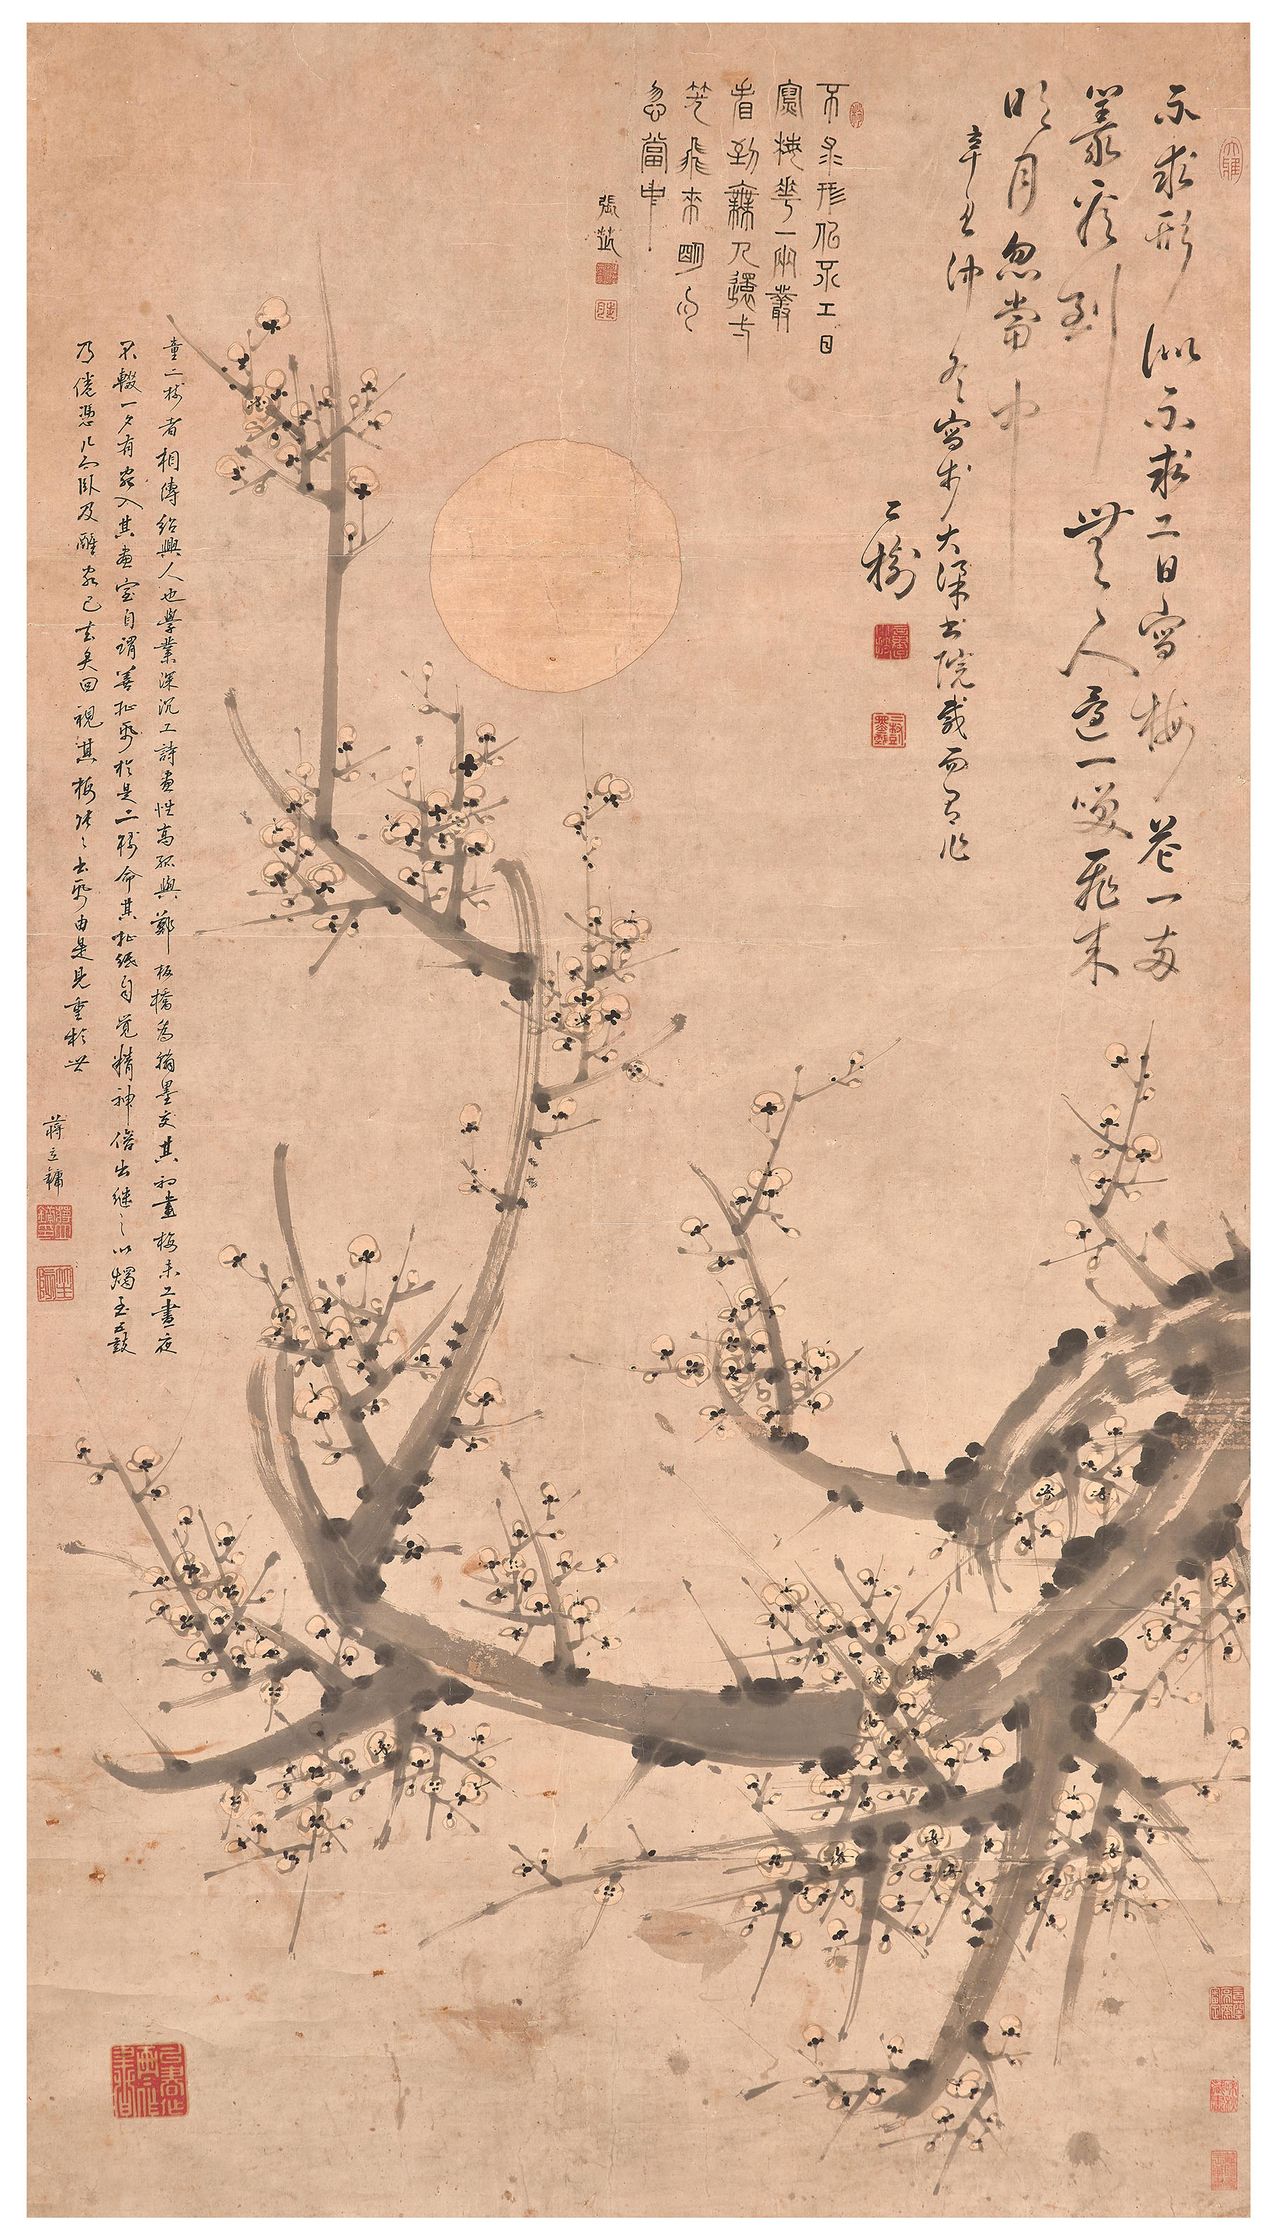 大雅
不求形似不求工日寫梅花一兩
叢看到無人還一笑飛來
明月忽當中
辛丑仲冬寫於大梁書院戲而有作
二樹
不求形佀不工日
寫梅華一兩叢
看到無人還
笑飛來明月
忽當中
張
童二樹者相傳紹興人也學業深沉工詩畫性高孤與鄭板橋為翰墨交其初畫梅未工晝夜
不輟一夕有客入其畫室自謂善扯於是二樹命其扯紙自覺精神倍出繼之以燭至五鼓
乃倦憑几而臥及醒客已去矣回視其梅出由是見重於世
蔣立鏞